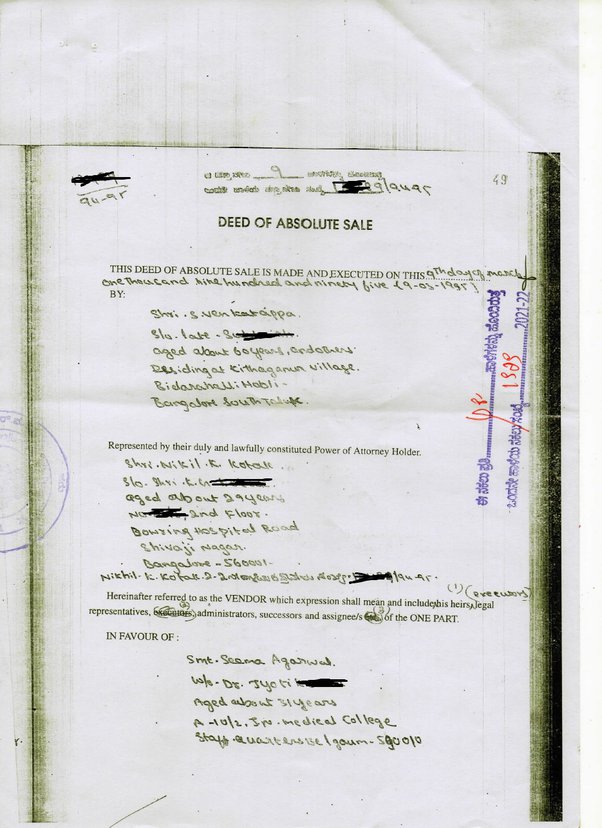 49
94-95
9
9/94-95
DEED OF ABSOLUTE SALE
THIS DEED OF ABSOLUTE SALE IS MADE AND EXECUTED ON THIS 9th day of march
one thousand nine hundred and ninety five (9-03-1995)
BY:
Shri. S. Venkatappa.
S/o. late.
aged about 60 years,
Residing at Kithaganur Village.
Bidarahalli Hobli-
Bangalore South Taluk.
Represented by their duly and lawfully constituted Power of Attorney Holder.
Shri. Nikil. K. Kotak
S/o. Shri. K.
aged about 29 years
2nd Floor.
Bowring Hospital Road
Shivaji Nagar.
Bangalore - 560001.
Nikhil. K. Kotak 9/94-95.
(1) (executors)
Hereinafter referred to as the VENDOR which expression shall mean and include his heirs, legal
representatives, administrators, successors and assignee/s of the ONE PART.
IN FAVOUR OF :
Smt. Seema Agarwal.
W/o. Dr. Jyoti
Aged about 31 years
A-10/2, Jn. medical College
Staff Quarters Belgaum-590010
ಈ ನಕಲು ಪ್ರತಿ ಹಾಳೆಗಳನ್ನು ಹೊಂದಿರುತ್ತೆ
ಒಂದನೇ ಹಾಳೆಯ ನಕಲು ಸಂಖ್ಯೆ 2021-22